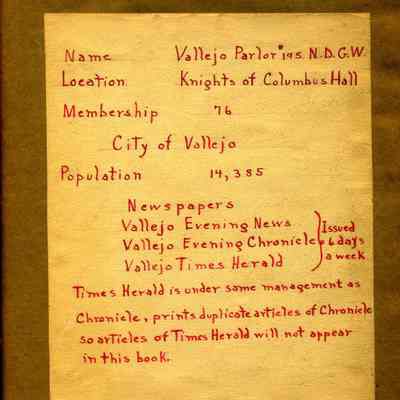 Name Vallejo Parlor #195 N.D.G.W.
Location Knights of Columbus Hall
Membership 76
City of Vallejo
Population 14,385
Newspapers
Vallejo Evening News
Vallejo Evening Chronicle
Vallejo Times Herald
Issued
6 days
a week
Times Herald is under same management as
Chronicle, prints duplicate articles of Chronicle
so articles of Times Herald will not appear
in this book.